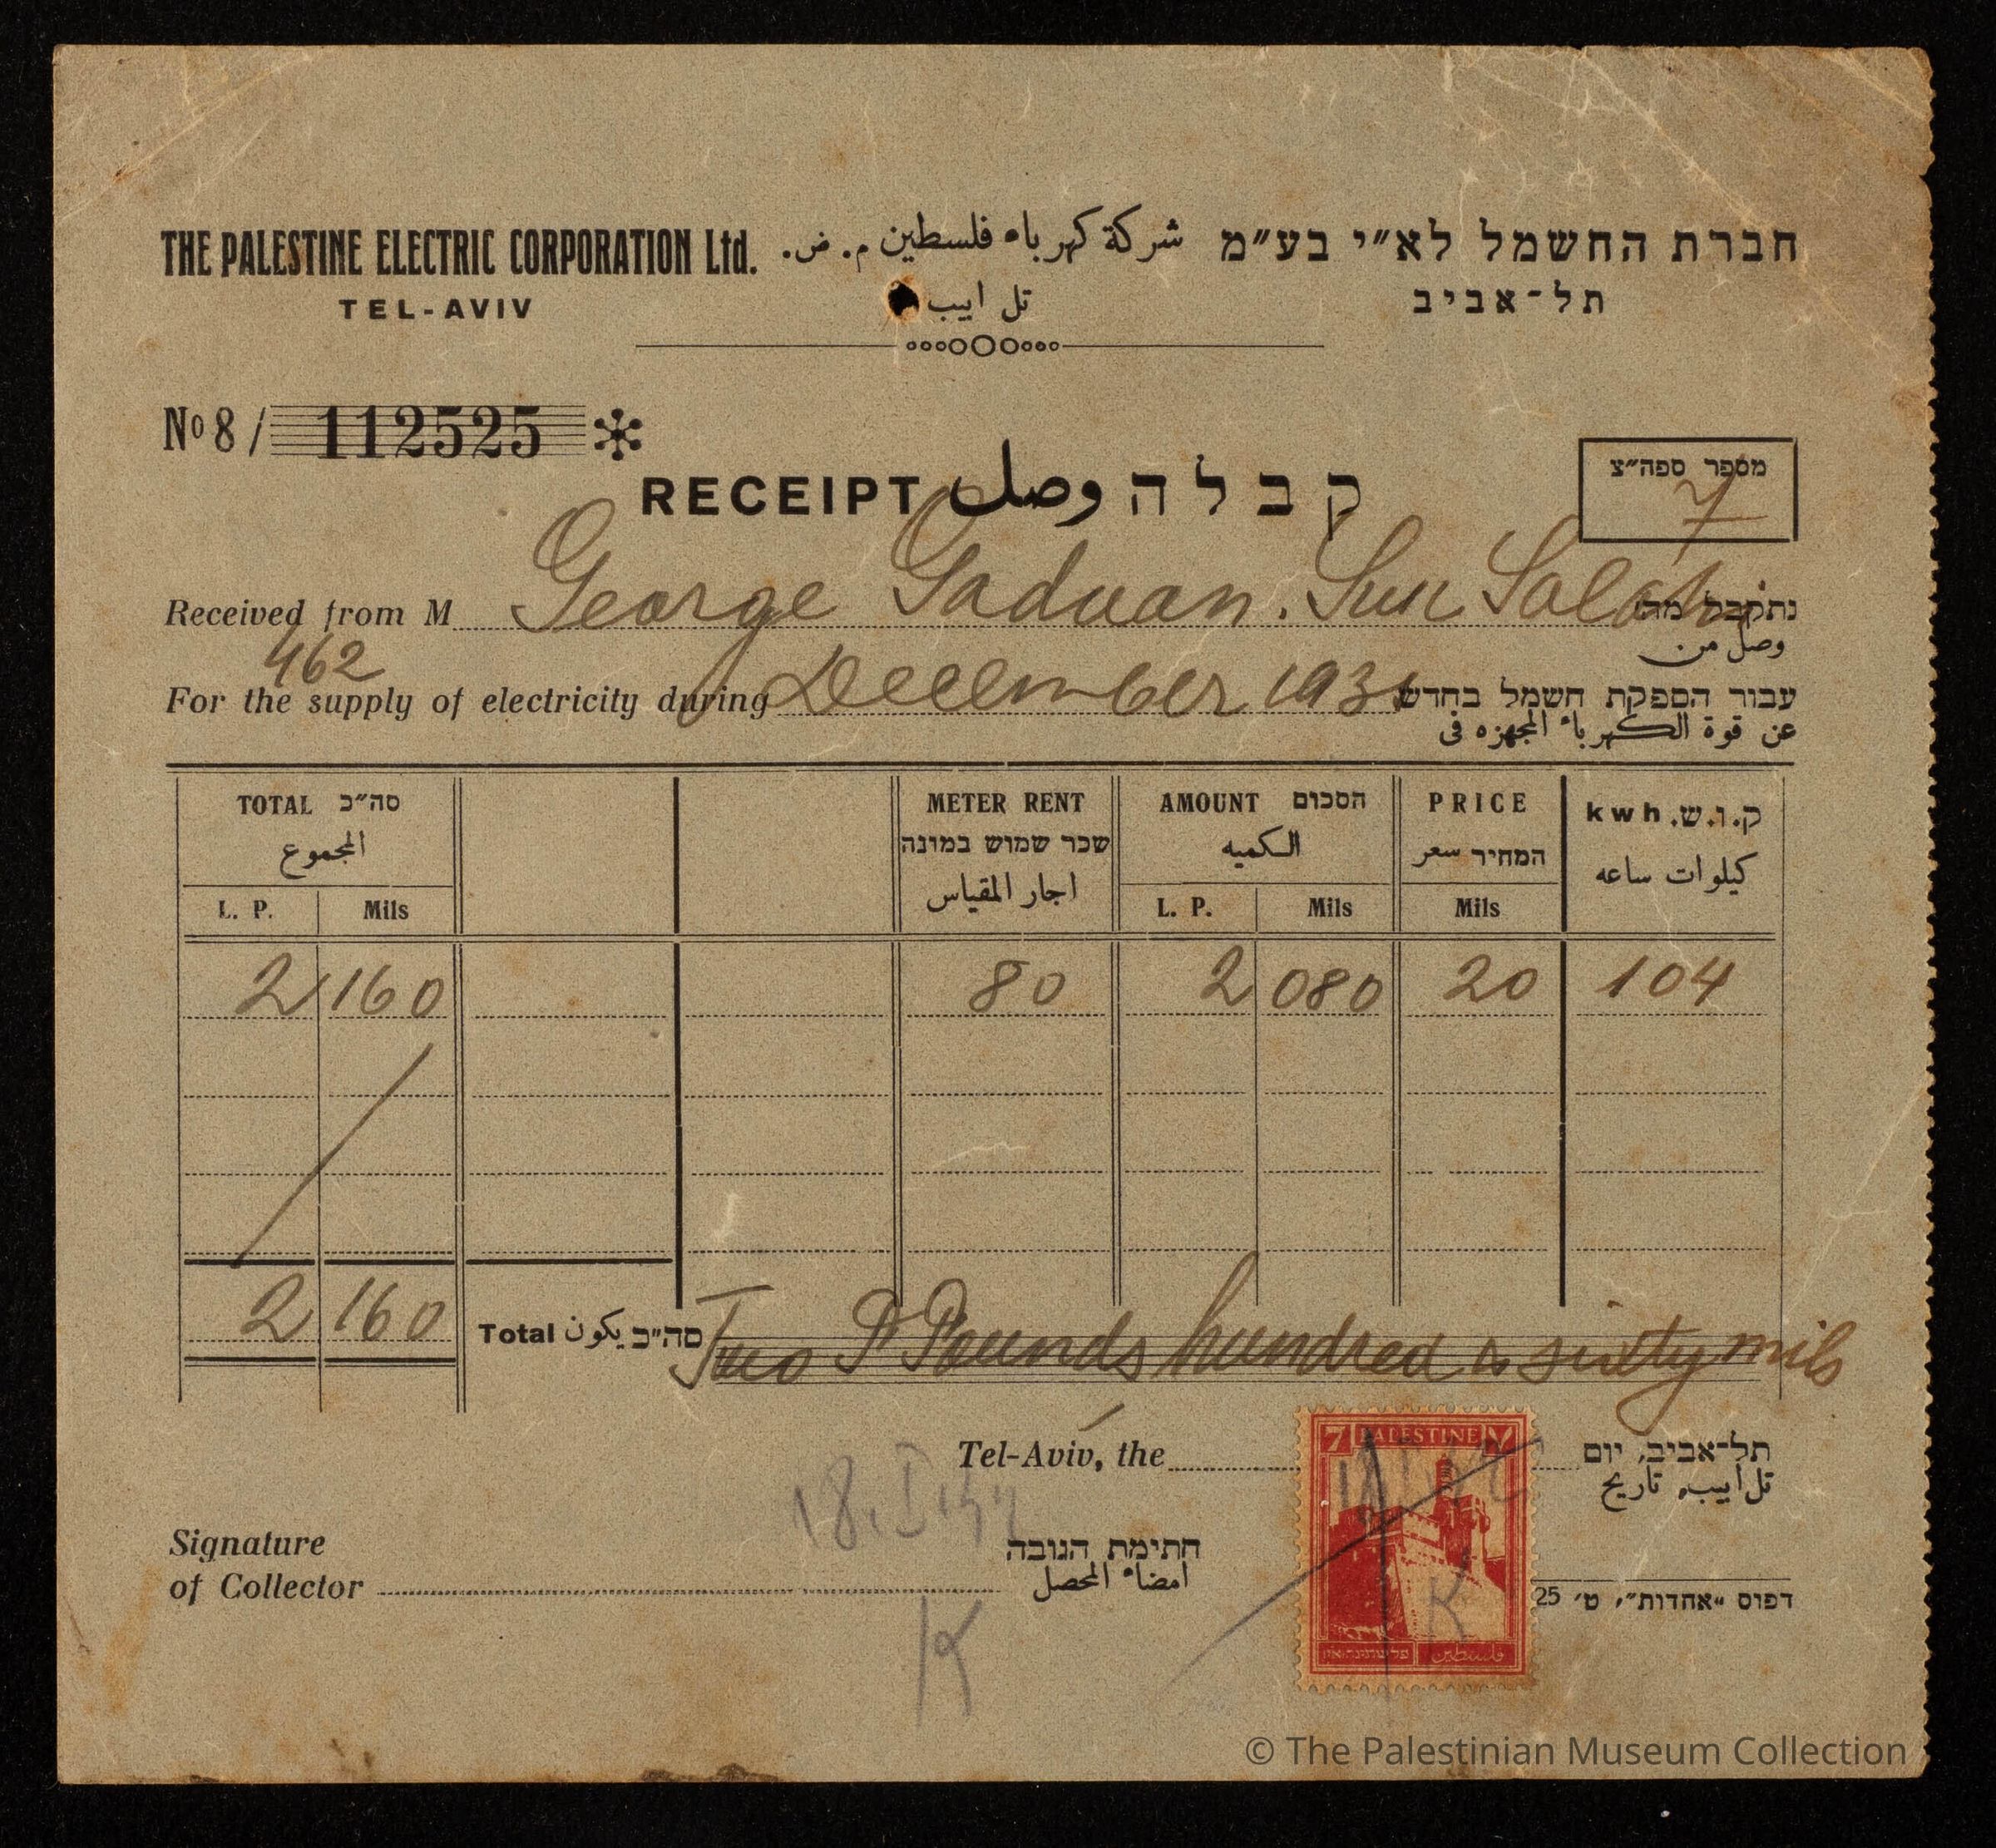 THE PALESTINE ELECTRIC CORPORATION Ltd. شركة كهرباء فلسطين م. ض. חברת החשמל לא״י בע״מ
TEL-AVIV تل ابيب תל-אביב
No 8/ 112525
RECEIPT وصل קבלה
מספר ספה״צ
7
Received from M George Gaduan. Suk Salahi נתקבל מה׳
وصل من
462
For the supply of electricity during December 1931 עבור הספקת חשמל בחדש
عن قوة الكهرباء المجهزه فى
TOTAL סה״כ METER RENT AMOUNT הסכום PRICE kwh ק.ו.ש.
المجموع שכר שמוש במונה الكميه המחיר سعر كيلوات ساعه
اجار المقياس
L. P. Mils L. P. Mils Mils
2 160 80 2 080 20 104
2 160 Total يكون סה״כ Two P Pounds hundred & sixty mils
Tel-Aviv, the תל-אביב, יום
تل ابيب، تاريخ
7 PALESTINE ٧
18.I.
Signature חתימת הגובה
of Collector امضاء المحصل
K
K
فلسطين
דפוס „אחדות״, ט׳ 25
© The Palestinian Museum Collection